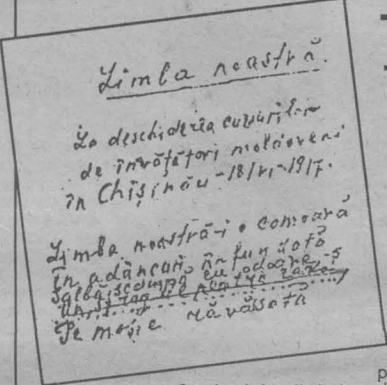 Limba noastră.
La deschiderea cursurilor
de învăţători moldoveni
în Chişinău - 18/VI - 1917.
Limba noastră-i o comoară
În adâncuri înfundată
Un şirag de piatră rară
Pe moşie revărsată
p